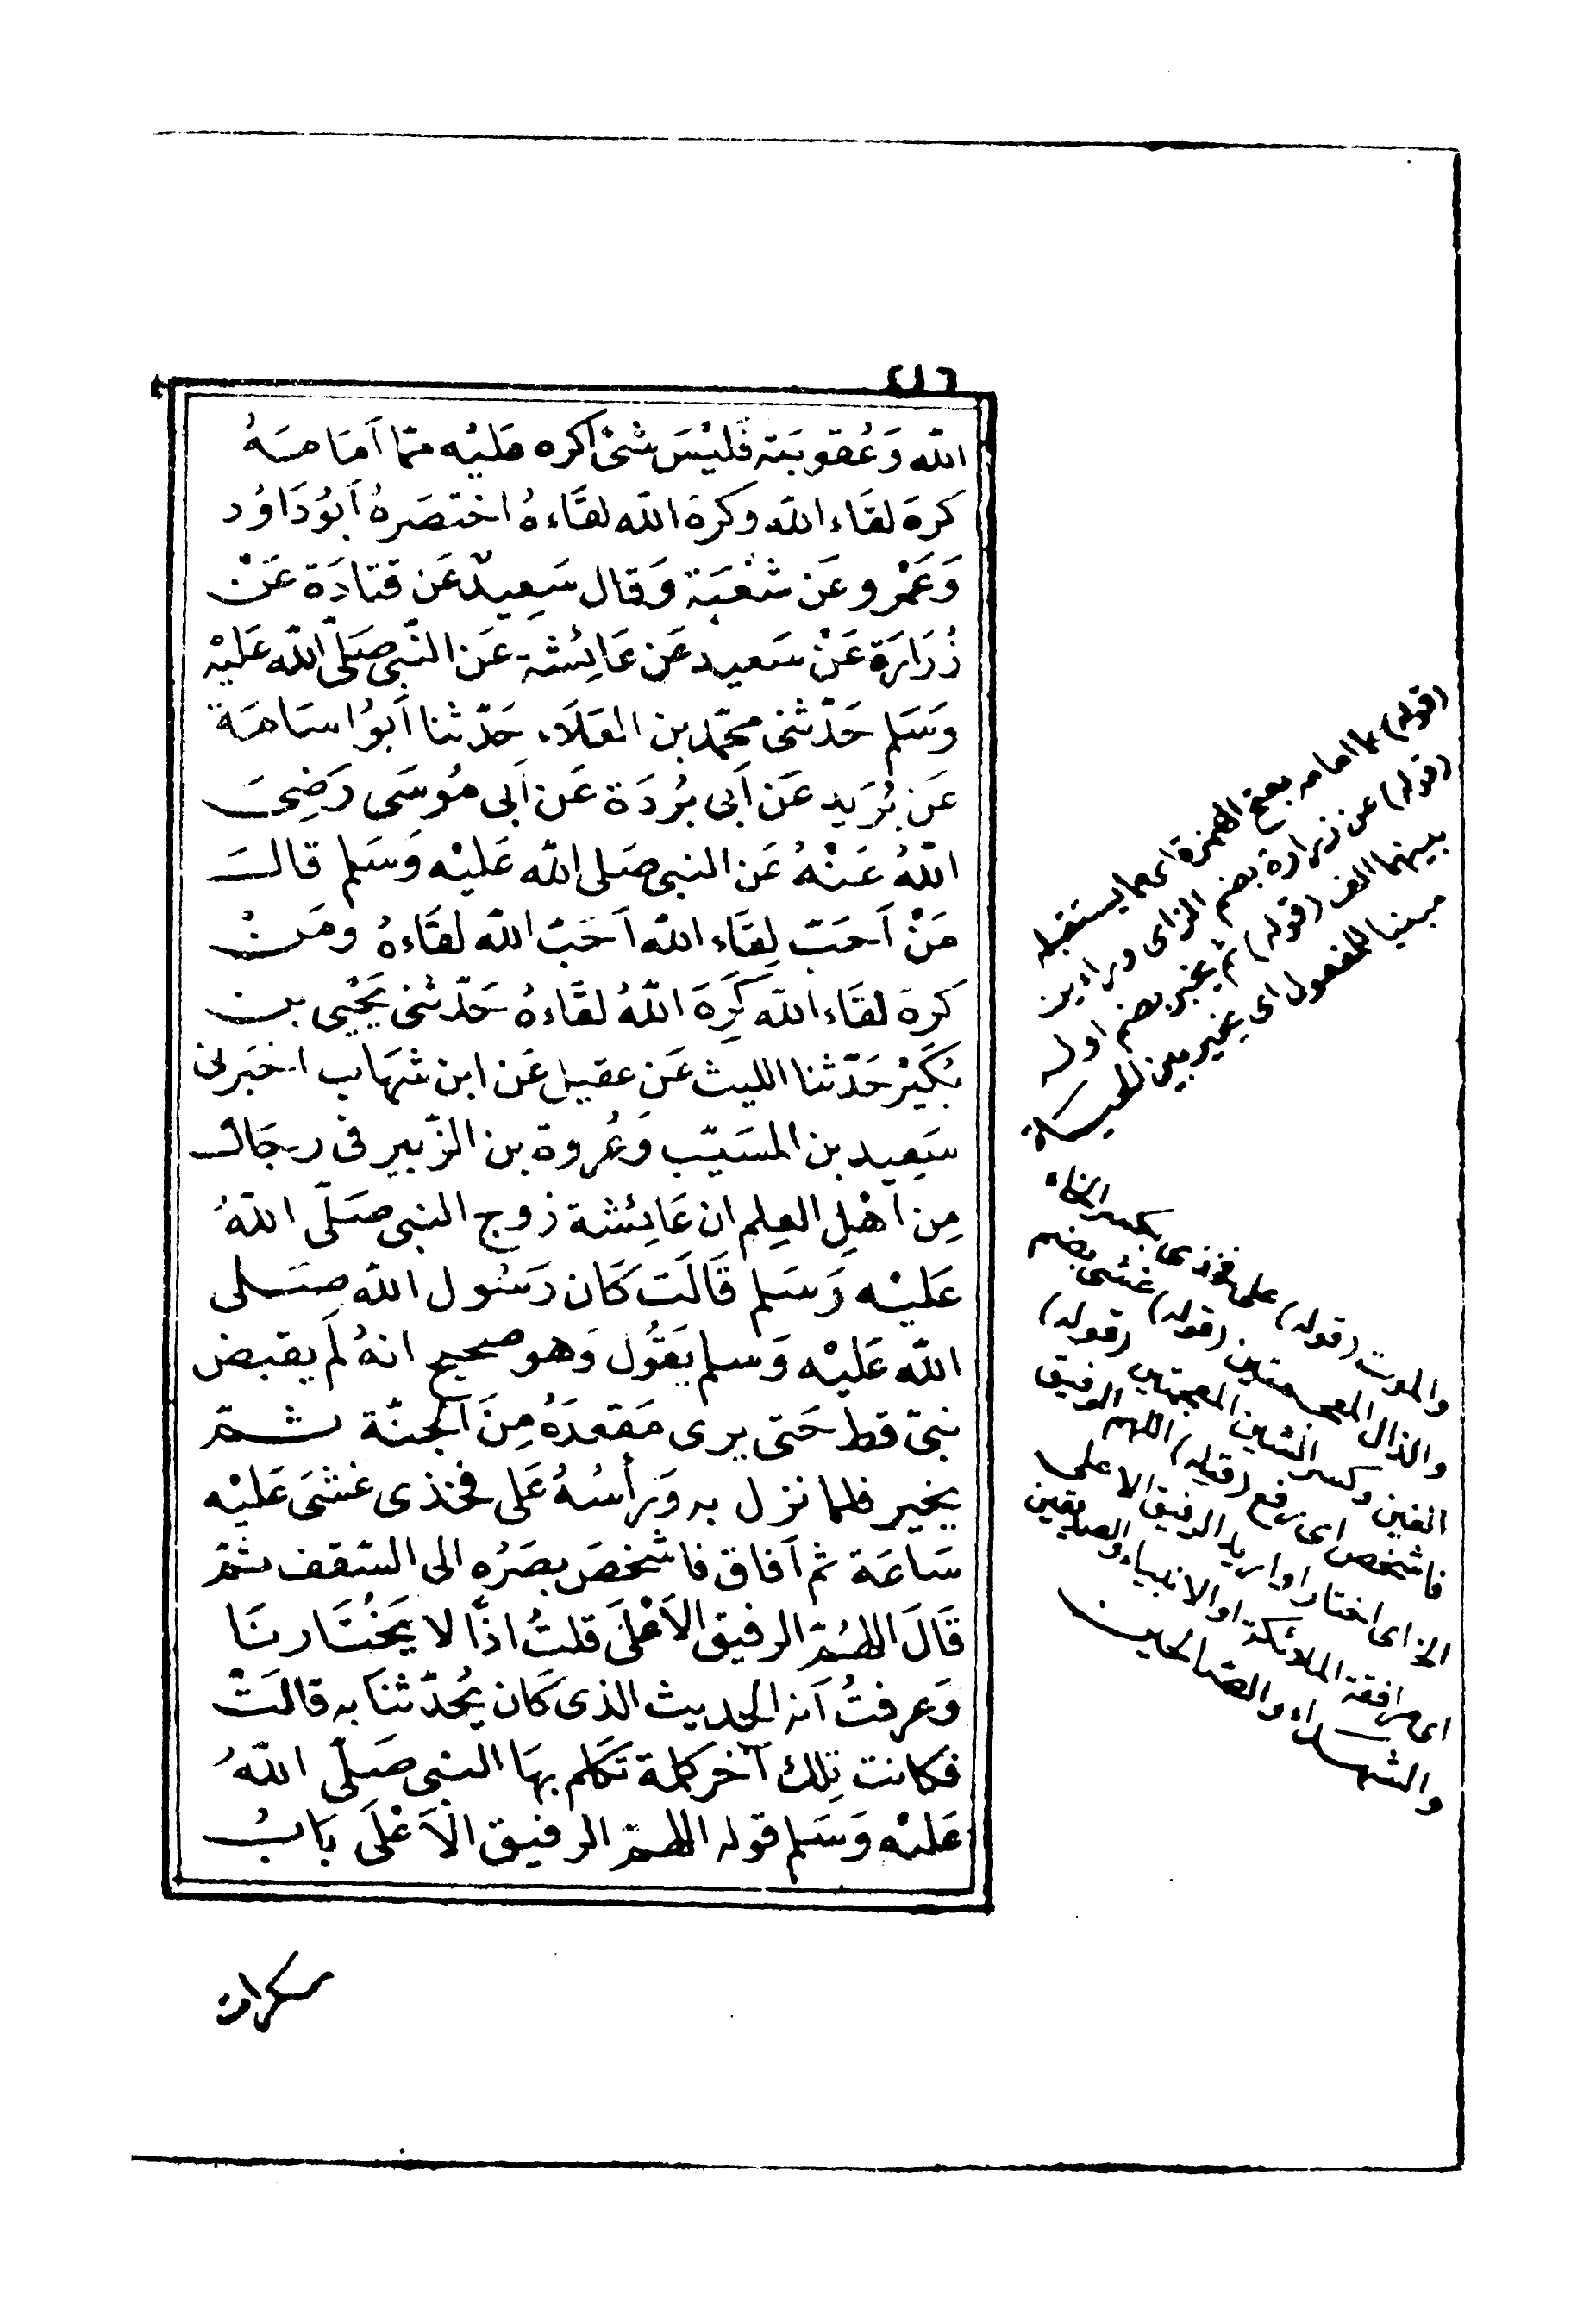 ٤١٦
الله وَعُقوبَته فَليْسَ شئ اكره عَليْه ممّا أمَامَهُ
كرهَ لقَاء الله وَكَرهَ الله لقَاءهُ اختصَرهُ أبُودَاوُد
وَعَمْرو عَن شُعْبَة وَقال سَعِيد عَن قتادَة عَنْ
زُرَارَة عَنْ سَعيد عَن عَائِشة عَن النّبي صَلّى الله عَليْه
وَسَلم حَدّثنى محمّد بن العَلاَء حَدّثنا أبوُ اسَامَة
عَن بُرَيد عَن أبى بُردَة عَن أبى مُوسَى رَضِىَ
اللهُ عَنْهُ عَن النبى صَلى الله عَليْه وَسَلم قالَ
مَنْ أحَبّ لِقَاء الله أحَبّ الله لقَاءهُ ومَنْ
كرهَ لقَاء الله كَرِهَ اللهُ لقَاءهُ حَدّثنى يَحْيى بن
بُكَيْر حَدّثنا الليث عَن عقيل عَن ابن شهَاب اخبَرنى
سَعِيد بن المسَيّب وَعُروة بن الزّبير فى رجَال
مِن أهْلِ العِلم ان عَائِشة زوج النبى صَلّى اللهُ
عَليْه وَسَلم قَالَت كَان رَسُول الله صَلى
الله عَليْه وَسلم يَقُول وَهو صحيح انهُ لَم يقبض
نبىّ قط حَتى يرى مَقعدَهُ مِنَ الجنّة ثمّ
يخير فلما نزل به وَرَأسُهُ عَلى فخذى غشىَ عَليْه
سَاعَة ثم أفاق فاشخصَ بصَرُه الى السّقف ثمّ
قَالَ اللهُمّ الرفيق الأعْلىَ قلتُ اذًا لا يَخْتَارنَا
وَعرفتُ أنه الحديث الذى كَان يُحدّثنَا به قالَتْ
فكانت تِلك آخر كلمة تكلم بهَا النبى صَلّى اللهُ
عَليْه وَسَلم قوله اللهمّ الرفيق الأعْلَى بَابُ
سكرات
(قوله) مما امامه بفتح الهمزة اى مما يستقبله
(قوله) عن زرارة بضم الزاى وراءين
بينهما الف (قوله) ثم يخير بضم اوله
مبنيا للمفعول اى يخير بين الحيَاة
والموت (قوله) على فخذى بكسر الخاء
والذال المعجمتين (قوله) غشى بضم
الغين وكسر الشين المعجمتين (قوله)
فاشخص اى رفع (قوله) اللهم الرفيق
الخ اى اختار او اريد الرفيق الاعلى
اى مرافقة الملائكة او الانبياء والصديقين
والشهداء والصالحين